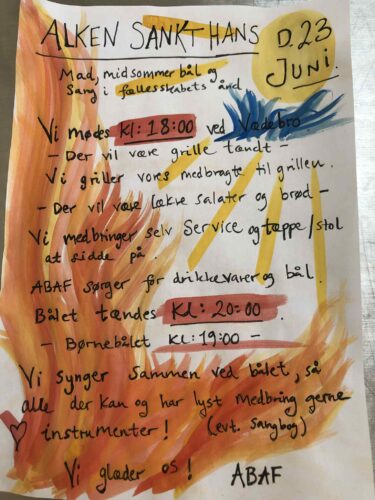 ALKEN SANKT HANS D. 23 JUNI.
Mad, midsommer bål og
Sang i fællesskabets ånd.
Vi mødes kl: 18:00 ved Vædebro
- Der vil være grille tændt -
Vi griller vores medbragte til grillen.
- Der vil være lækre salater og brød -
Vi medbringer selv Service og tæppe/stol
at sidde på.
ABAF sørger for drikkevarer og bål.
Bålet tændes Kl: 20:00.
- Børnebålet kl: 19:00 -
Vi synger sammen ved bålet, så
alle der kan og har lyst medbring gerne
instrumenter! (evt. Sangbog)
Vi glæder os! ABAF